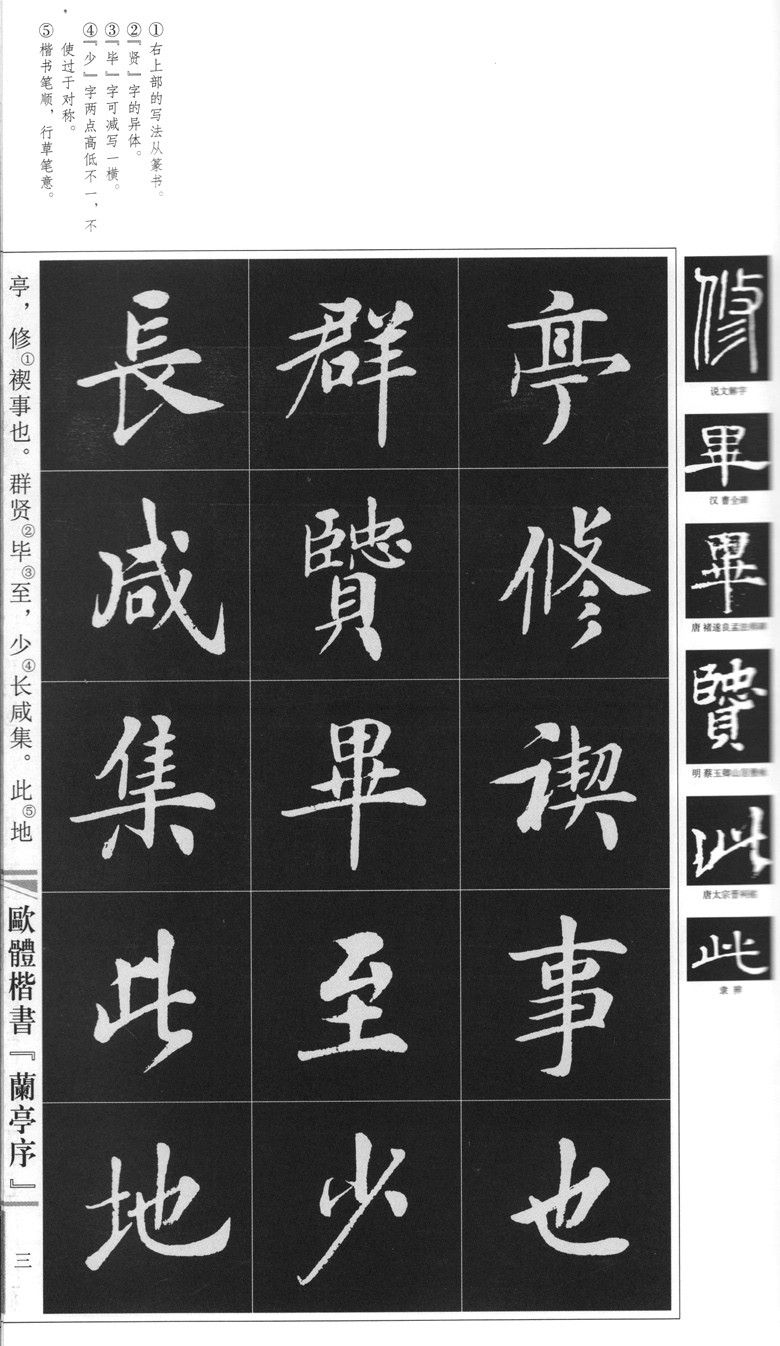 ①右上部的写法从篆书。
②『贤』字的异体。
③『毕』字可减写一横。
④『少』字两点高低不一，不
使过于对称。
⑤楷书笔顺，行草笔意。
修
说文解字
畢
汉 曹全碑
畢
唐 褚遂良孟法师碑
贒
明 蔡玉卿山居
此
唐太宗晋祠铭
此
隶辨
亭修禊事也
群贒畢至少
長咸集此地
亭，修①禊事也。群贤②毕③至，少④长咸集。此⑤地
歐體楷書『蘭亭序』
三